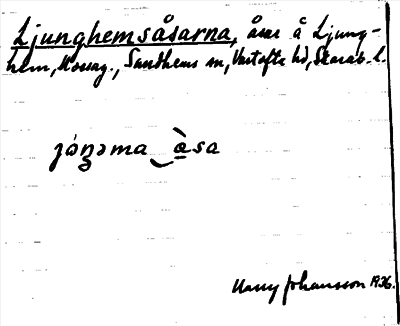 Ljunghemsåsarna, åsar å Ljung-
hem, Kosag., Sandhems sn, Vartofta hd, Skarab. l.
jóŋəma ‿ àsa
Harry Johansson 1936.